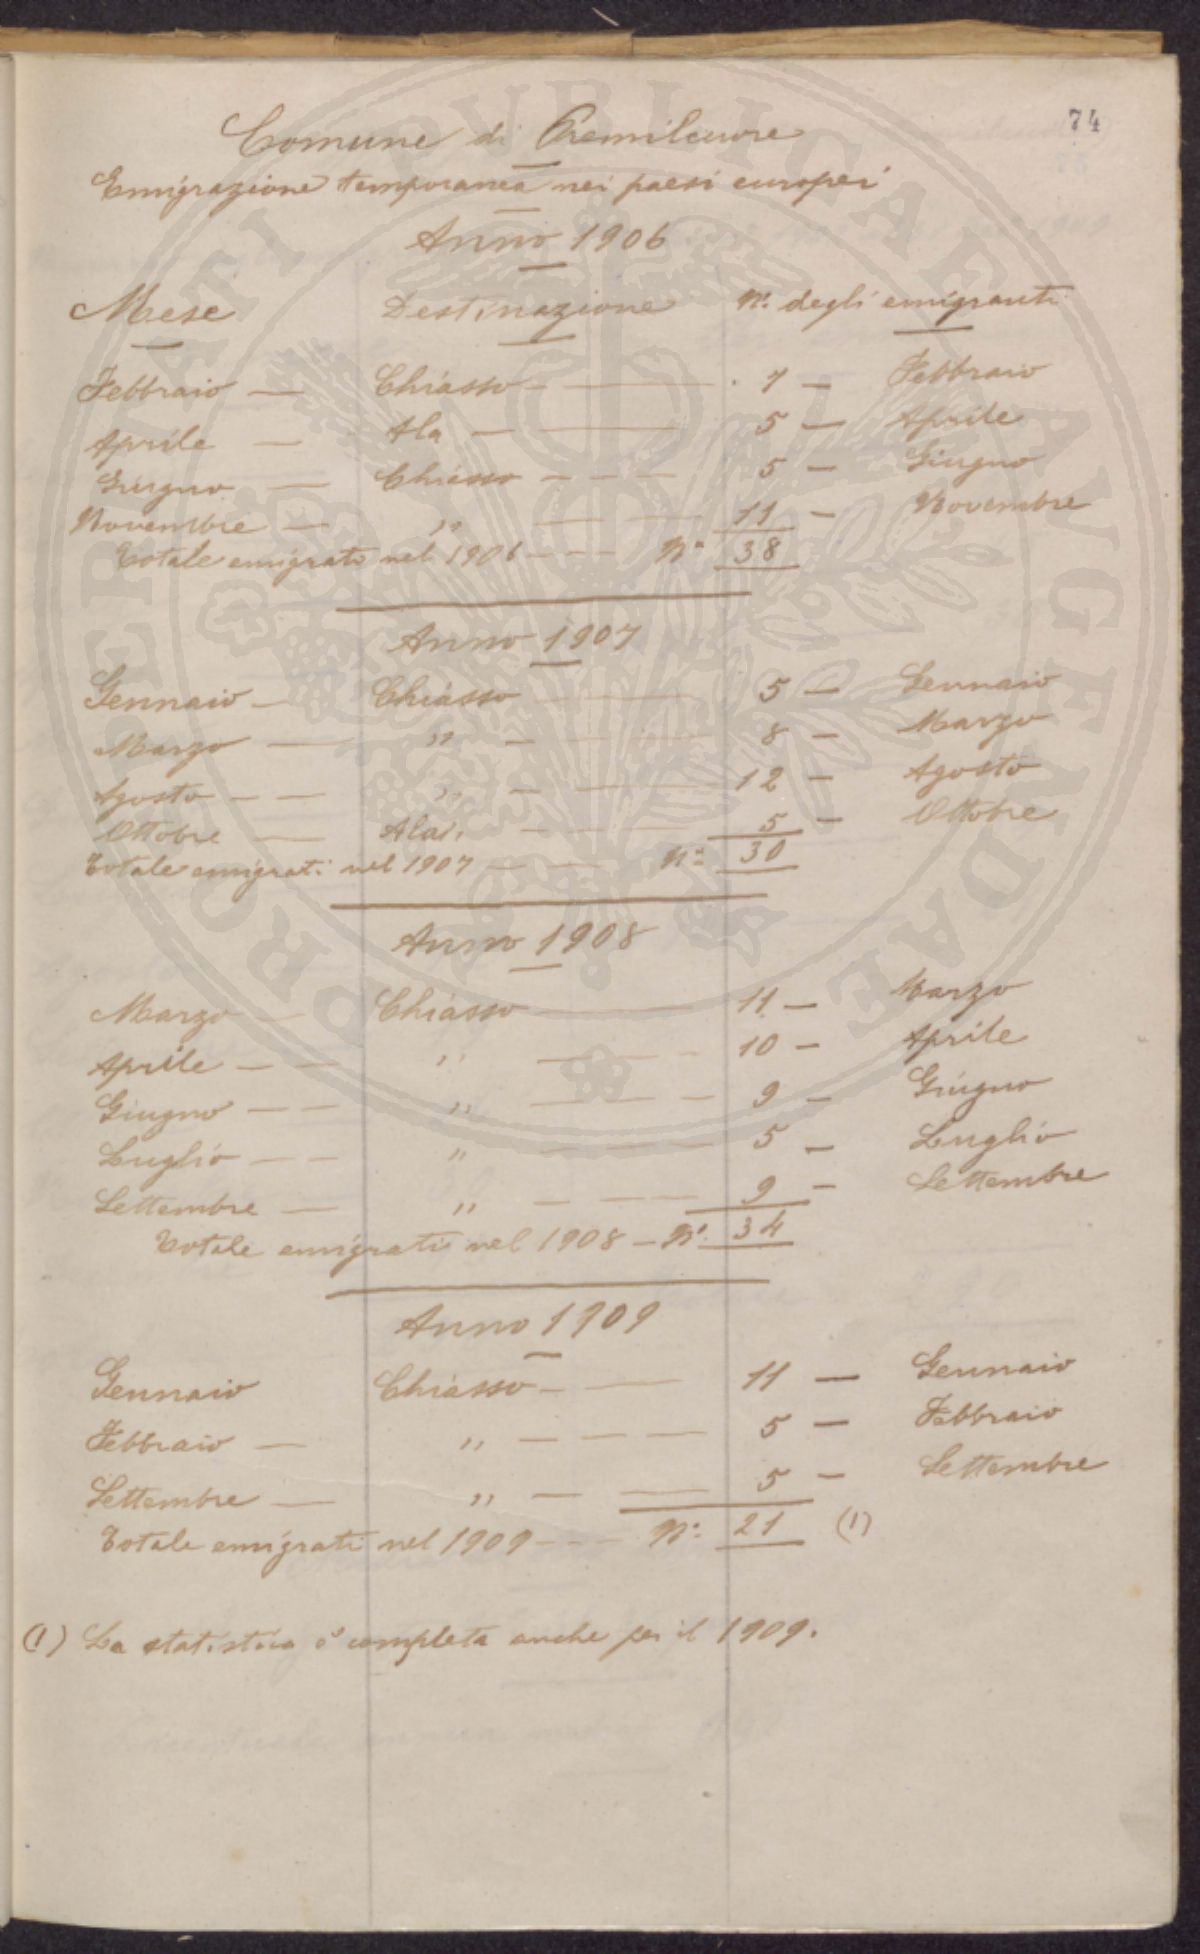 74
Comune di Premilcuore
Emigrazione temporanea nei paesi europei
Anno 1906
Mese Destinazione N.° degli emigranti
Febbraio — Chiasso — 7 — Febbraio
Aprile — Ala — 5 — Aprile
Giugno — Chiasso — 5 — Giugno
Novembre — „ — 11 — Novembre
Totale emigrati nel 1906 — N.° 38
Anno 1907
Gennaio — Chiasso — 5 — Gennaio
Marzo — „ — 8 — Marzo
Agosto — „ — 12 — Agosto
Ottobre — Ala — 5 — Ottobre
Totale emigrati nel 1907 — N.° 30
Anno 1908
Marzo — Chiasso — 11 — Marzo
Aprile — „ — 10 — Aprile
Giugno — „ — 9 — Giugno
Luglio — „ — 5 — Luglio
Settembre — „ — 9 — Settembre
Totale emigrati nel 1908 — N.° 34
Anno 1909
Gennaio Chiasso — 11 — Gennaio
Febbraio — „ — 5 — Febbraio
Settembre — „ — 5 — Settembre
Totale emigrati nel 1909 — N.° 21 (1)
(1) La statistica è completa anche per il 1909.